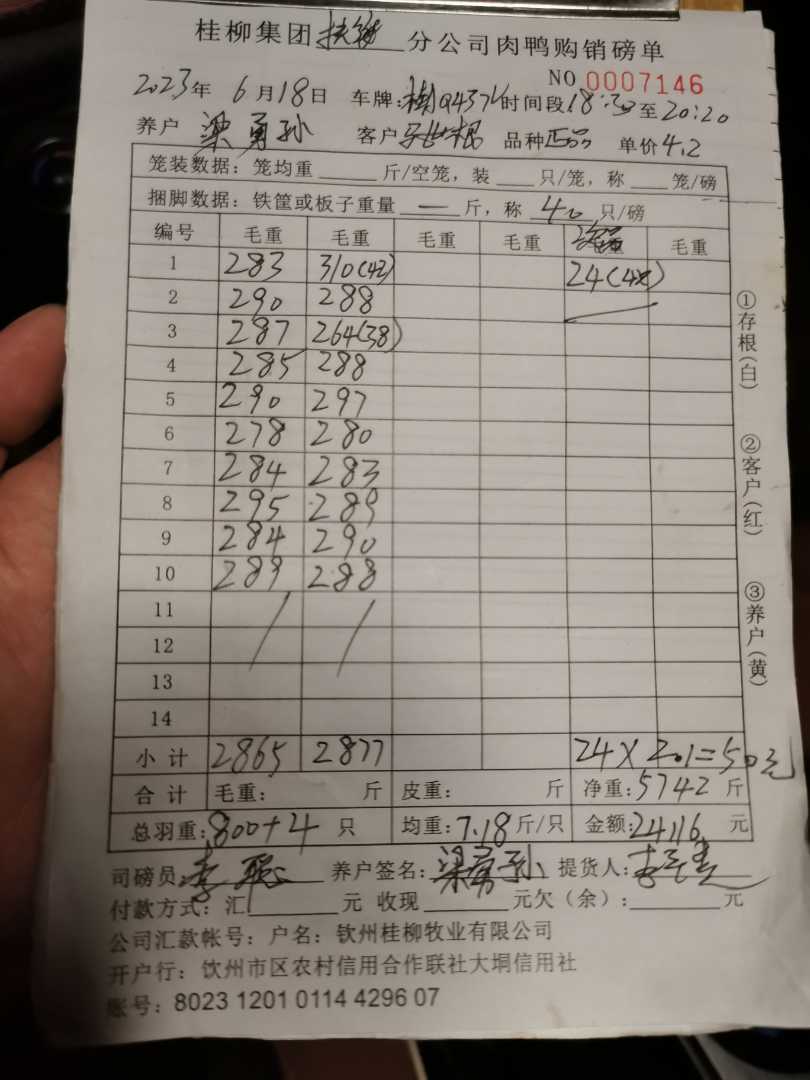 桂柳集团 分公司肉鸭购销磅单
NO 0007146
2023年 6月18日 车牌: 时间段18:30至20:20
养户 梁勇孙 客户 品种正品 单价4.2
笼装数据：笼均重 斤/空笼，装 只/笼，称 笼/磅
捆脚数据：铁筐或板子重量 一 斤，称 40 只/磅
编号 毛重 毛重 毛重 毛重 毛重
1 283 310(42) 24
2 290 288
3 287 264(38)
4 285 288
5 290 297
6 278 280
7 284 283
8 295 289
9 284 290
10 289 288
11 / /
12
13
14
小计 2865 2877 24×2.1=50元
合计 毛重： 斤 皮重： 斤 净重：5742 斤
总羽重：800+4 只 均重：7.18斤/只 金额：24116 元
司磅员 养户签名：梁勇孙 提货人：
付款方式：汇 元 收现 元欠（余）： 元
公司汇款帐号：户名：钦州桂柳牧业有限公司
开户行：钦州市区农村信用合作联社大垌信用社
账号：8023 1201 0114 4296 07
①存根(白)
②客户(红)
③养户(黄)